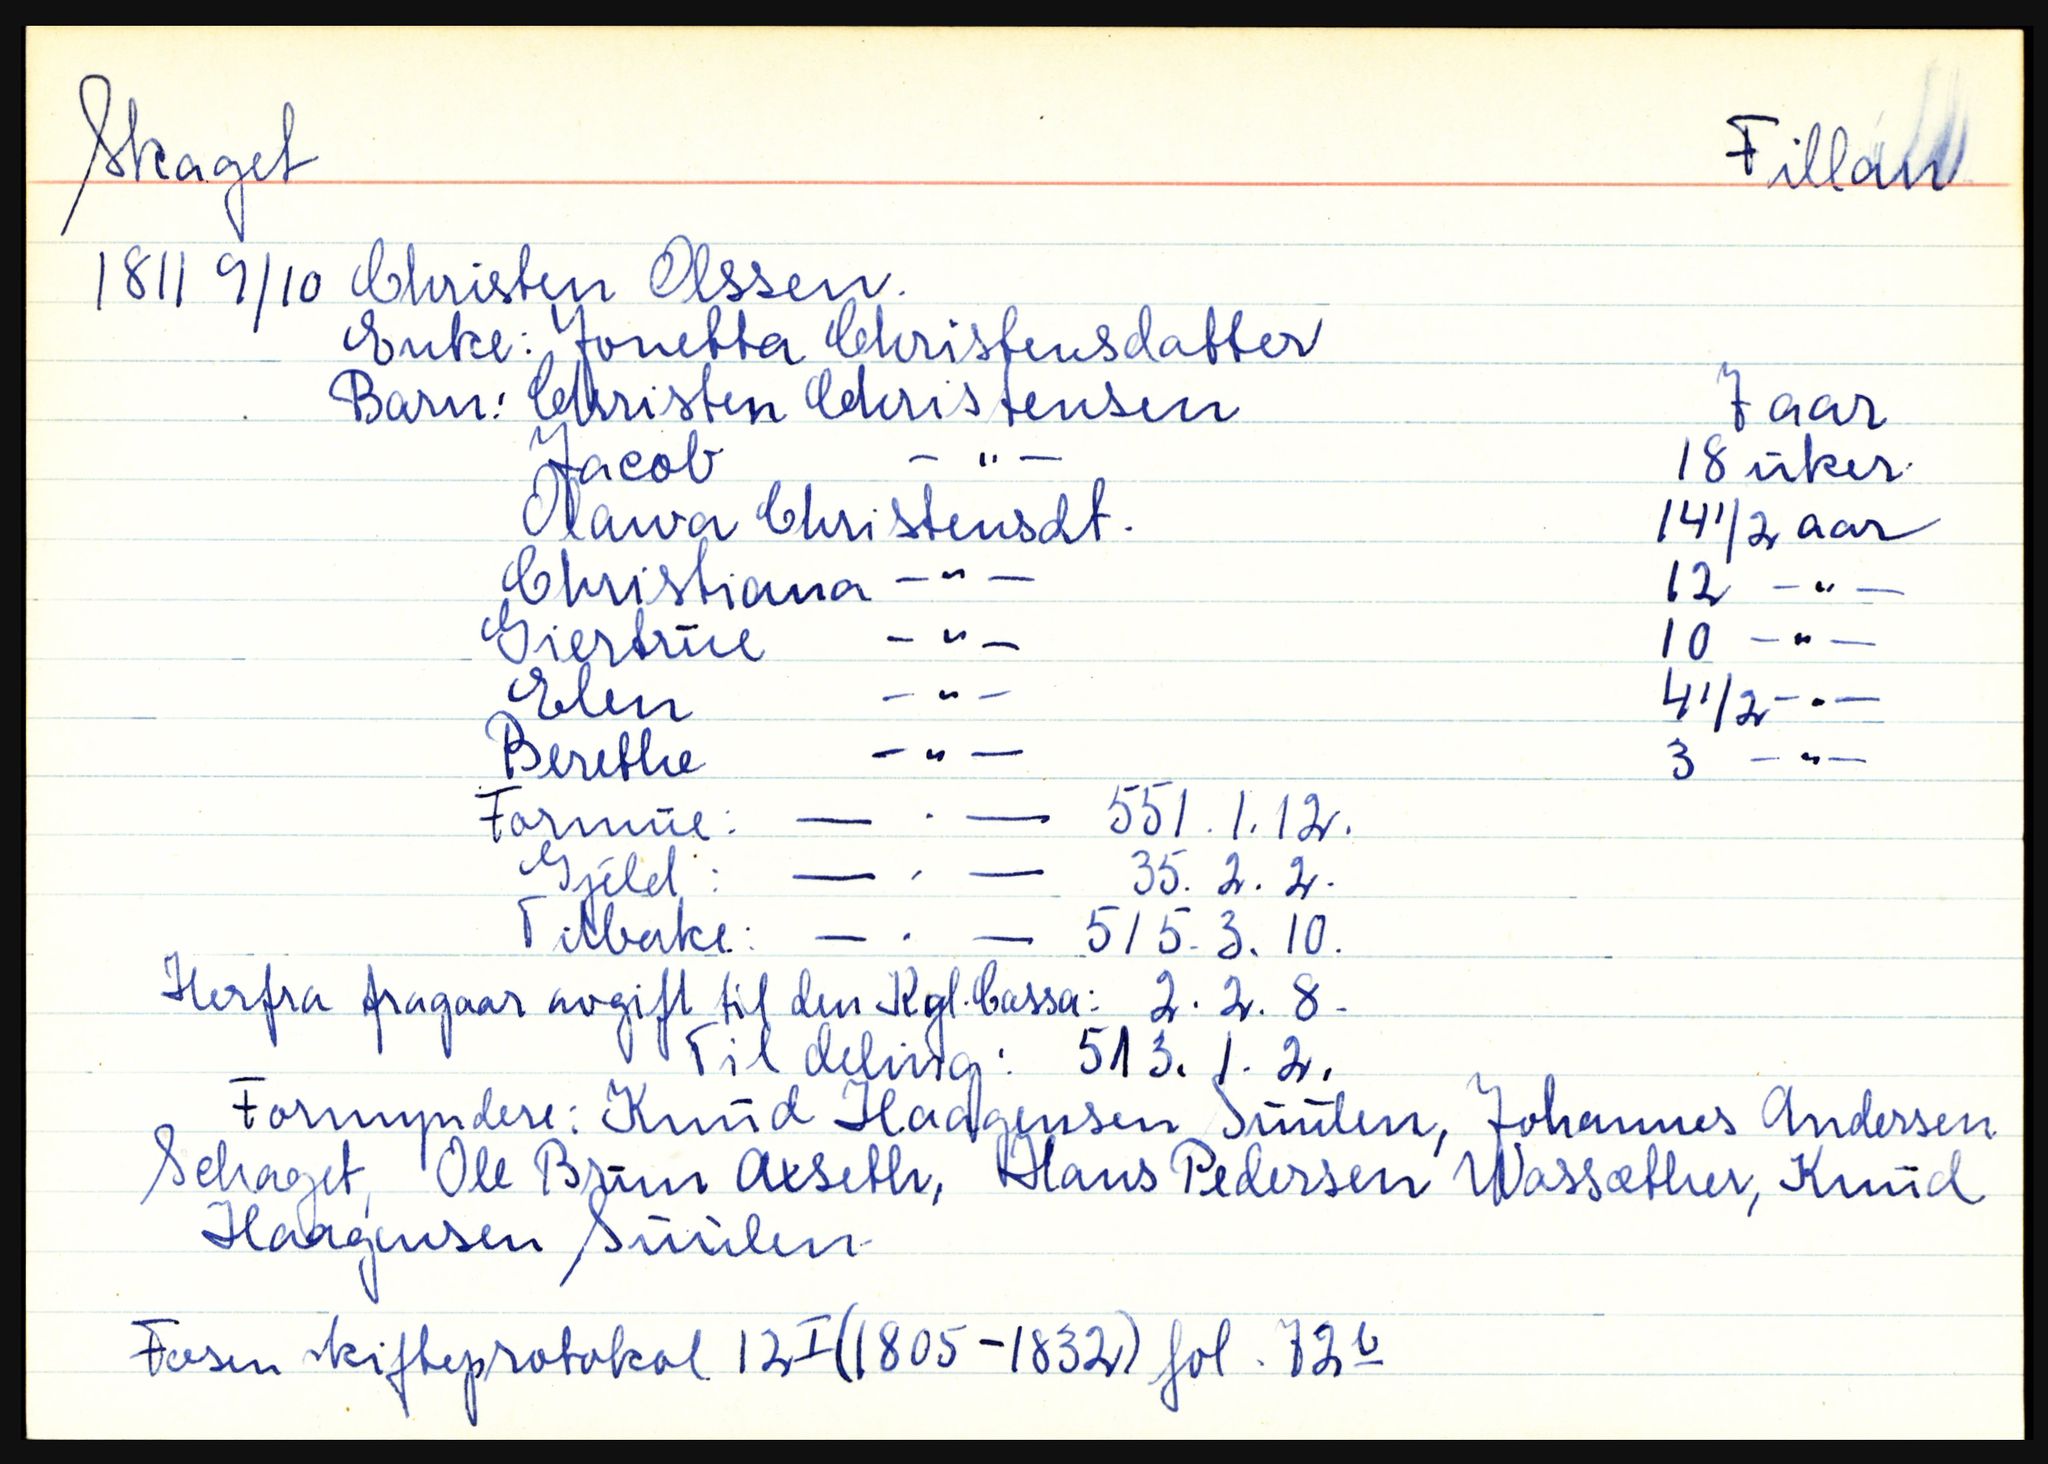 Skaget Fillan
1811 9/10 Christen Olssen.
Enke: Jonetta Christensdatter
Barn: Christen Christensen 7 aar
Jacob — " — 18 uker
Olawa Christensdt. 14 1/2 aar
Christiana — " — 12 — " —
Giertrue — " — 10 — " —
Elen — " — 4 1/2 — " —
Berethe — " — 3 — " —
Formue: — . — 551. 1. 12.
Gjeld: — . — 35. 2. 2.
Tilbake: — . — 515. 3. 10.
Herfra fragaar avgift til den Kgl. Cassa: 2. 2. 8.
Til deling: 513. 1. 2.
Formyndere: Knud Haagensen Suulen, Johannes Andersen
Schaget, Ole Brun Axseth, Hans Pedersen Wassæther, Knud
Haagensen Suulen
Fosen skifteprotokol 12 I (1805-1832) fol. 72 b